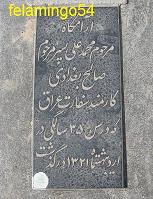 felamingo54
آرامگاه
مرحوم محمد علی پسر مرحوم
صالح بغدادی
کارمند سفارت عراق
که در سن ۳۵ سالگی در
اردیبهشت ۱۳۲۱ درگذشت